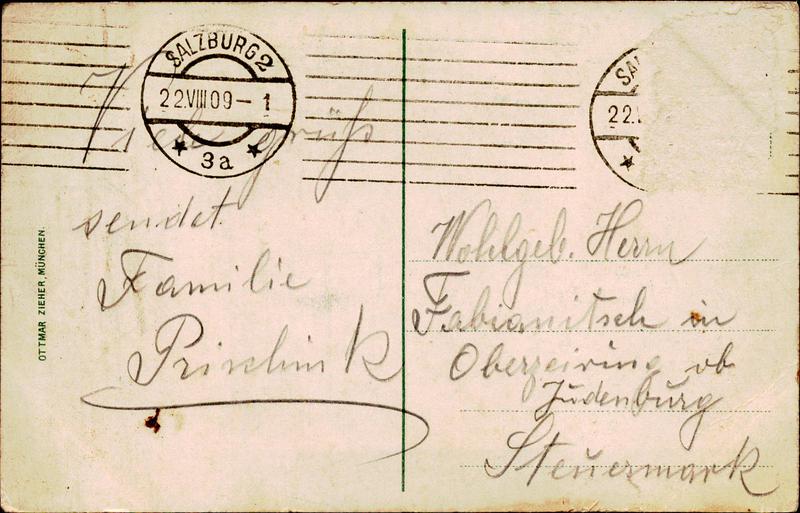 SALZBURG 2
22.VIII 09 – 1
★ 3a ★
SAL
22.
Viele Grüße
sendet
Familie
OTTMAR ZIEHER, MÜNCHEN.
Wohlgeb. Herrn
Fabianitsch in
Oberzeiring ob
Judenburg
Steuermark